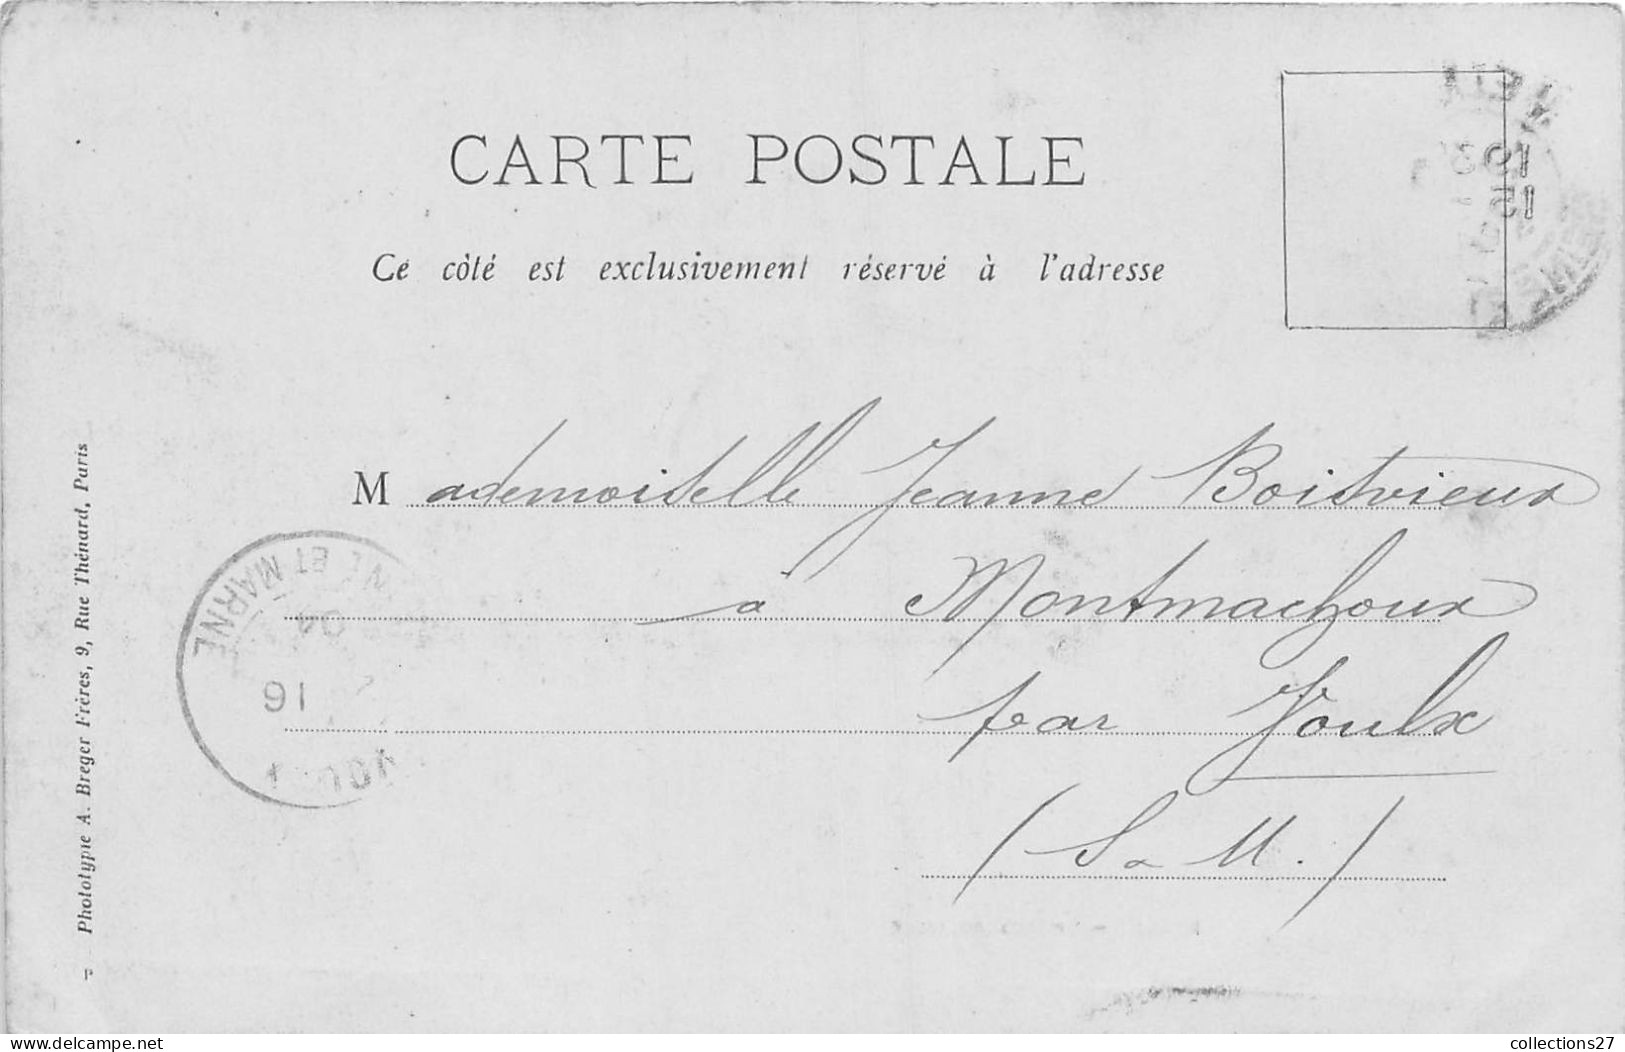 CARTE POSTALE
Ce côté est exclusivement réservé à l'adresse
Mademoiselle Jeanne Boistvieux
à Montmachoux
par Voulx
(S & M.)
Phototypie A. Breger Frères, 9, Rue Thénard, Paris
ET MARNE
04
16
collections27